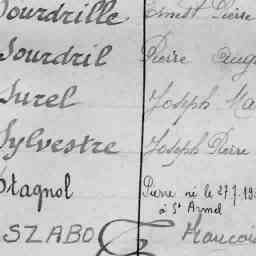 Sourdrille Ernest Pierre
Sourdril Pierre Augu
Surel Joseph Ma
Sylvestre Joseph Pierre
Stagnol Pierre né le 27.7.19
à St Armel
SZABO Francois